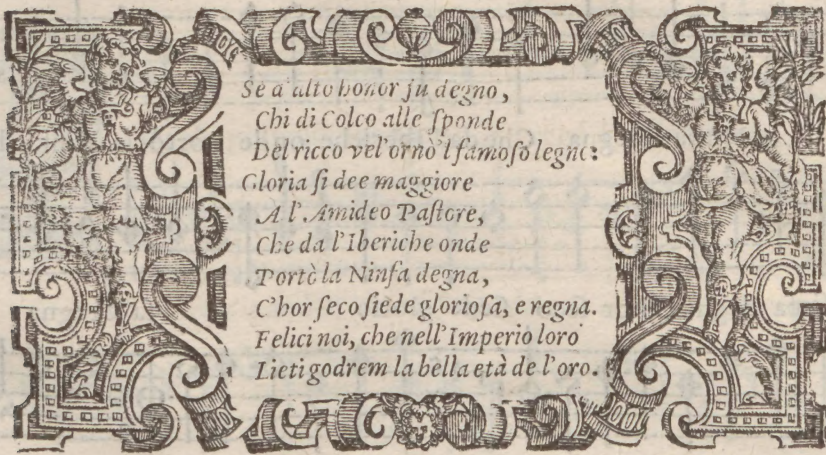 Se a alto honor fu degno,
Chi di Colco alle ſponde
Del ricco vel'ornò'l famoſo legno:
Gloria ſi dee maggiore
A l'Amideo Paſtore,
Che da l'Iberiche onde
Portò la Ninfa degna,
C'hor ſeco ſiede glorioſa, e regna.
Felici noi, che nell'Imperio loro
Lieti godrem la bella età de l'oro.